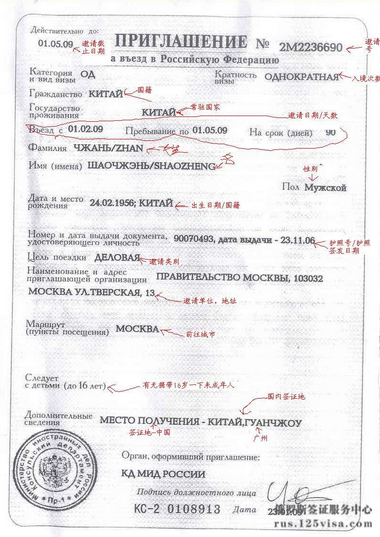 Действительно до:
01.05.09 邀请截止日期
ПРИГЛАШЕНИЕ № 2M2236690 邀请号
а въезд в Российскую Федерацию
Категория и вид визы ОД Кратность визы ОДНОКРАТНАЯ 入境次数
Гражданство КИТАЙ 国籍
Государство проживания КИТАЙ 常驻国家 邀请日期/天数
Въезд с 01.02.09 Пребывание по 01.05.09 На срок (дней) 90
Фамилия ЧЖАНЬ/ZHAN 姓
Имя (имена) ШАОЧЖЭНЬ/SHAOZHENG 名
性别
Пол Мужской
Дата и место рождения 24.02.1956; КИТАЙ 出生日期/国籍
Номер и дата выдачи документа,
удостоверяющего личность 90070493, дата выдачи - 23.11.06 护照号/护照签发日期
Цель поездки ДЕЛОВАЯ 邀请类别
Наименование и адрес
приглашающей организации ПРАВИТЕЛЬСТВО МОСКВЫ, 103032
МОСКВА УЛ.ТВЕРСКАЯ, 13 邀请单位，地址
Маршрут
(пункты посещения) МОСКВА 前往城市
Следует
с детьми (до 16 лет) 有无携带16岁一下未成年人
国内签证地
Дополнительные сведения МЕСТО ПОЛУЧЕНИЯ - КИТАЙ,ГУАНЧЖОУ
签证地-中国 广州
Орган, оформивший приглашение:
КД МИД РОССИИ
Министерство иностранных дел России
Консульский департамент
* Пр-1 *
Подпись должностного лица
КС-2 0108913 Дата
俄罗斯签证服务中心
rus.125visa.com